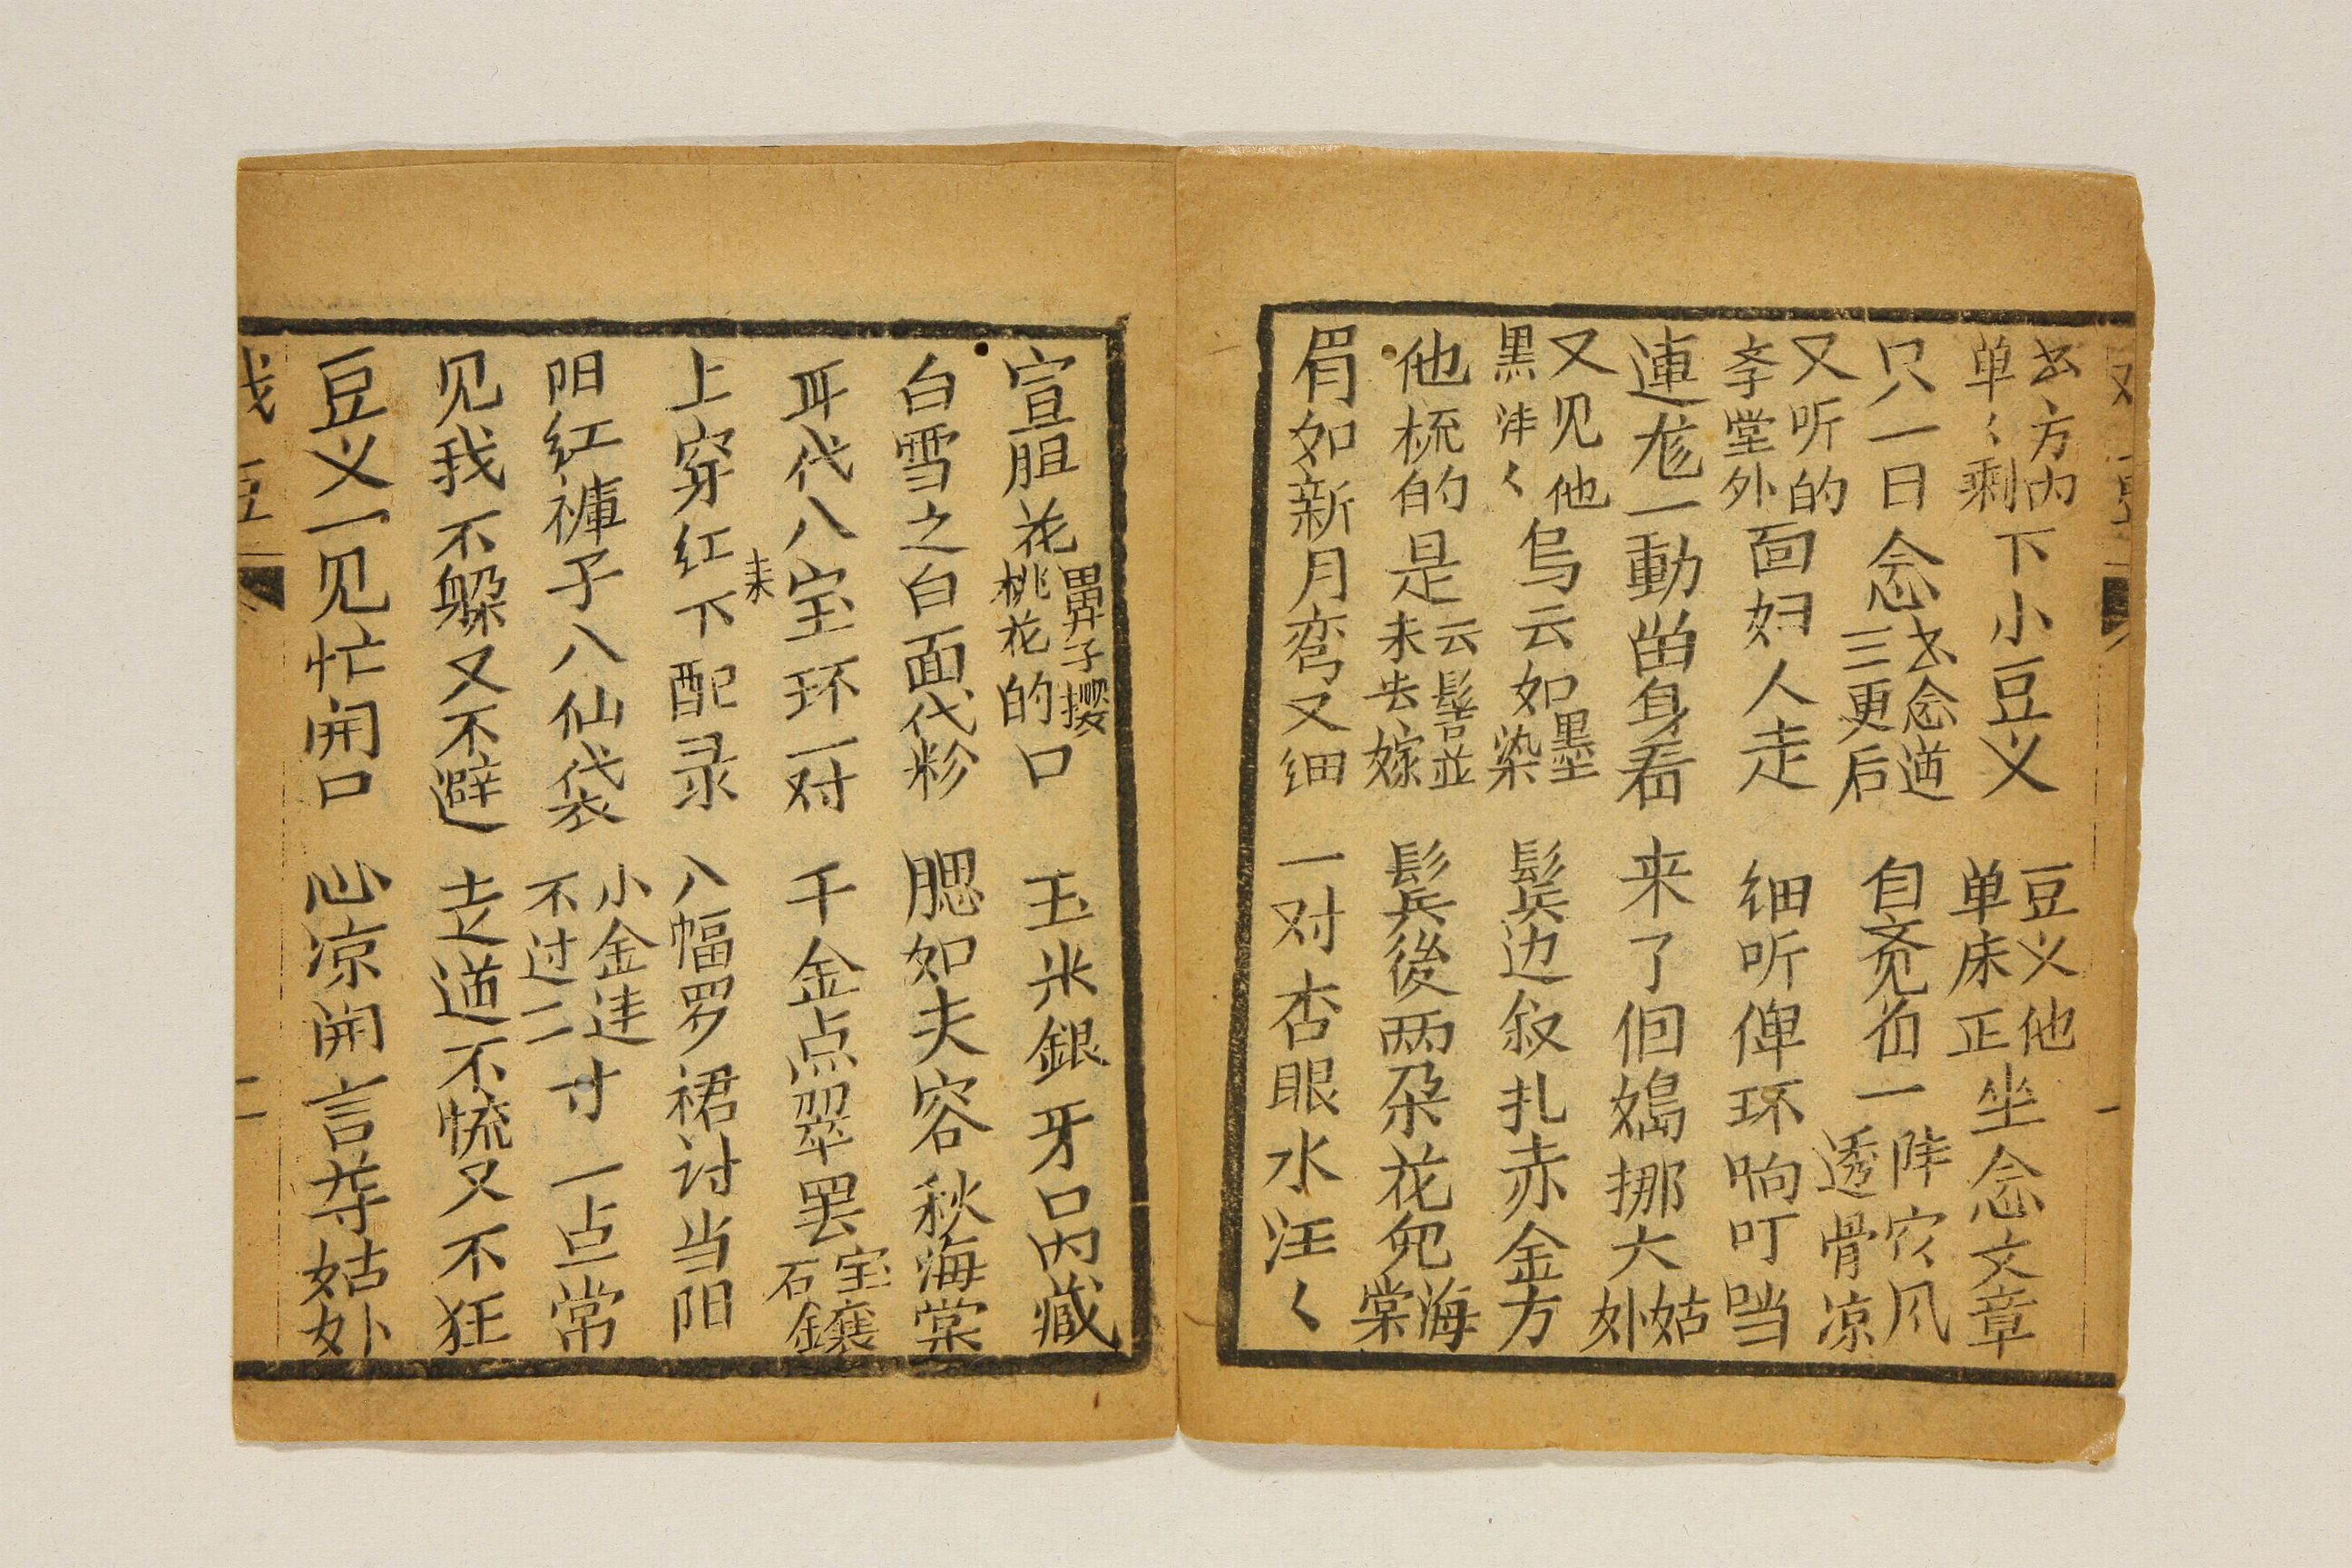 书方内单〻剩下小豆义　豆义他单床正坐念文章
只一日念书念道三更后　自觉着一阵穴风透骨凉
又听的孝堂外面妇人走　细听俾环响叮珰
连忙一動留身看　来了個嫣挪大姑外
又见他黑洋〻乌云如墨染　鬓边叙扎赤金方
他梳的是云髻並未出嫁　鬓後两朵花兜海棠
眉如新月弯又细　一对杏眼水汪〻
宣胆花鼻子撄桃花的口　玉米銀牙口内藏
白雪之白面代粉　腮如夫容秋海棠
耳代八宝环一对　千金点翠罢宝石鑲
上穿红下耒配录　八幅罗裙讨当阳
阳红褲子八仙袋　小金连不过二寸一点常
见我不躲又不避　走道不慌又不狂
豆义一见忙闹口　心凉開言等姑外